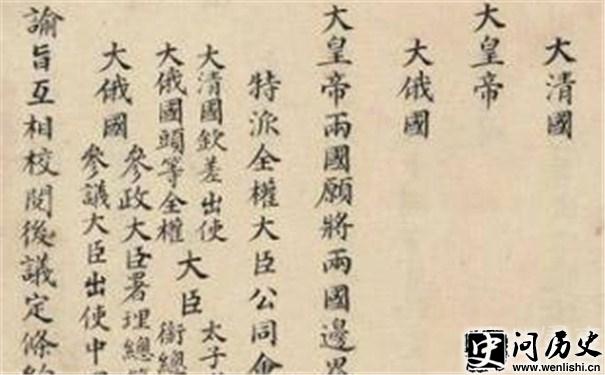 大清國
大皇帝
大俄國
大皇帝兩國願將兩國邊界
特派全權大臣公同會
大清國欽差出使
大俄國頭等全權
大臣
太子
參政大臣署理總
銜總
大俄國
參議大臣出使中
諭旨互相校閱後議定條約
问历史
www.wenlishi.cn